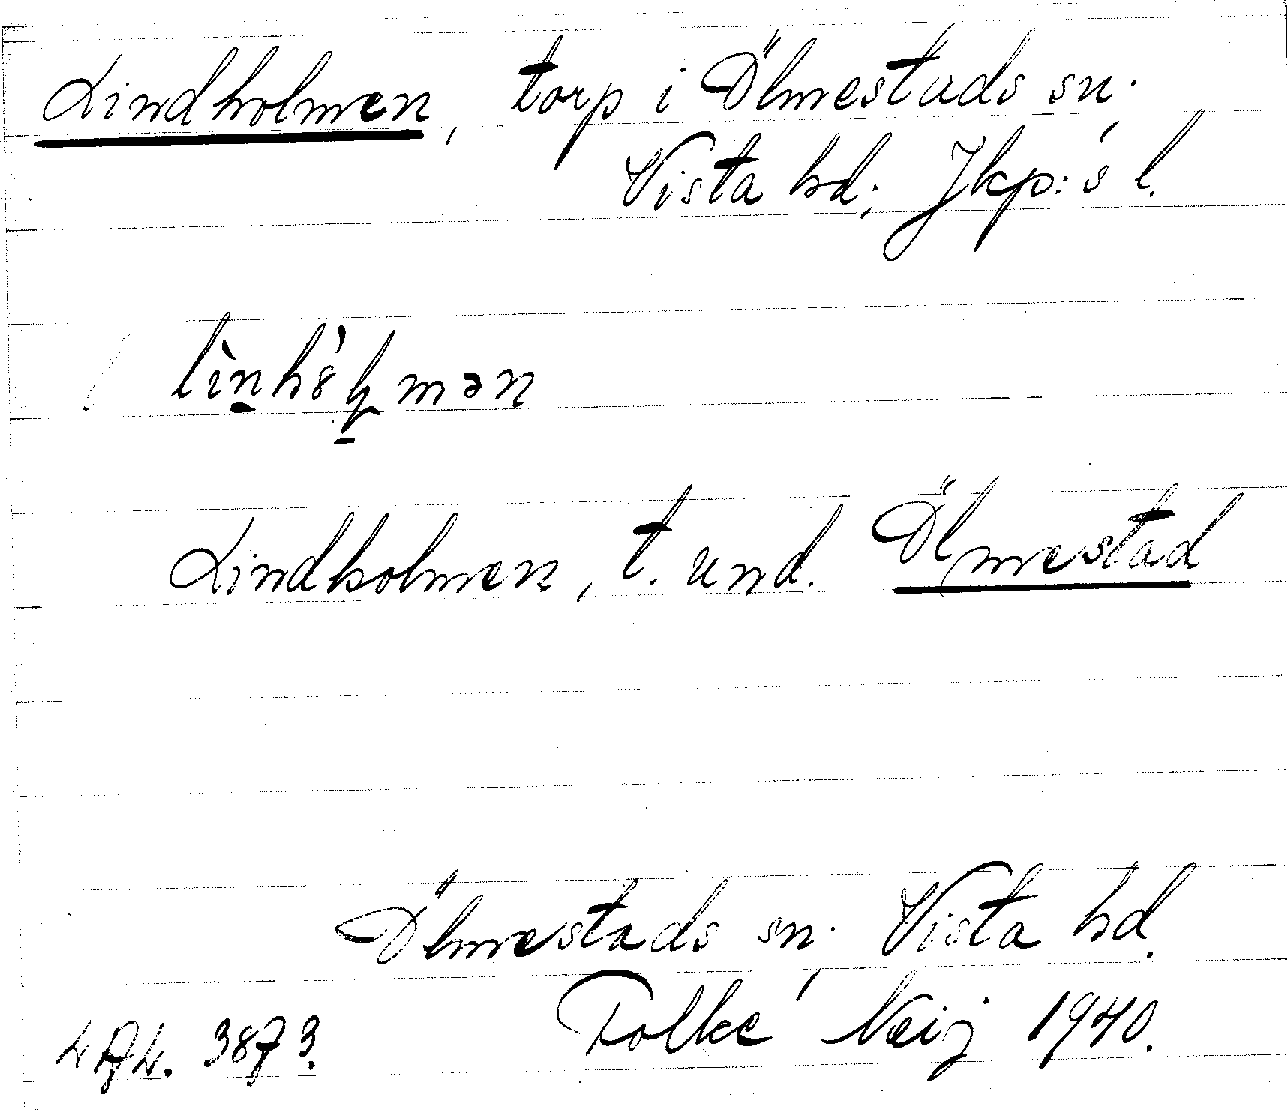 Lindholmen, torp i Ölmestads sn.
Vista hd, Jkp:s l.
Lindholmen, t. und. Ölmestad
Ölmestads sn. Vista hd.
Folke Neij 1940.
3873.